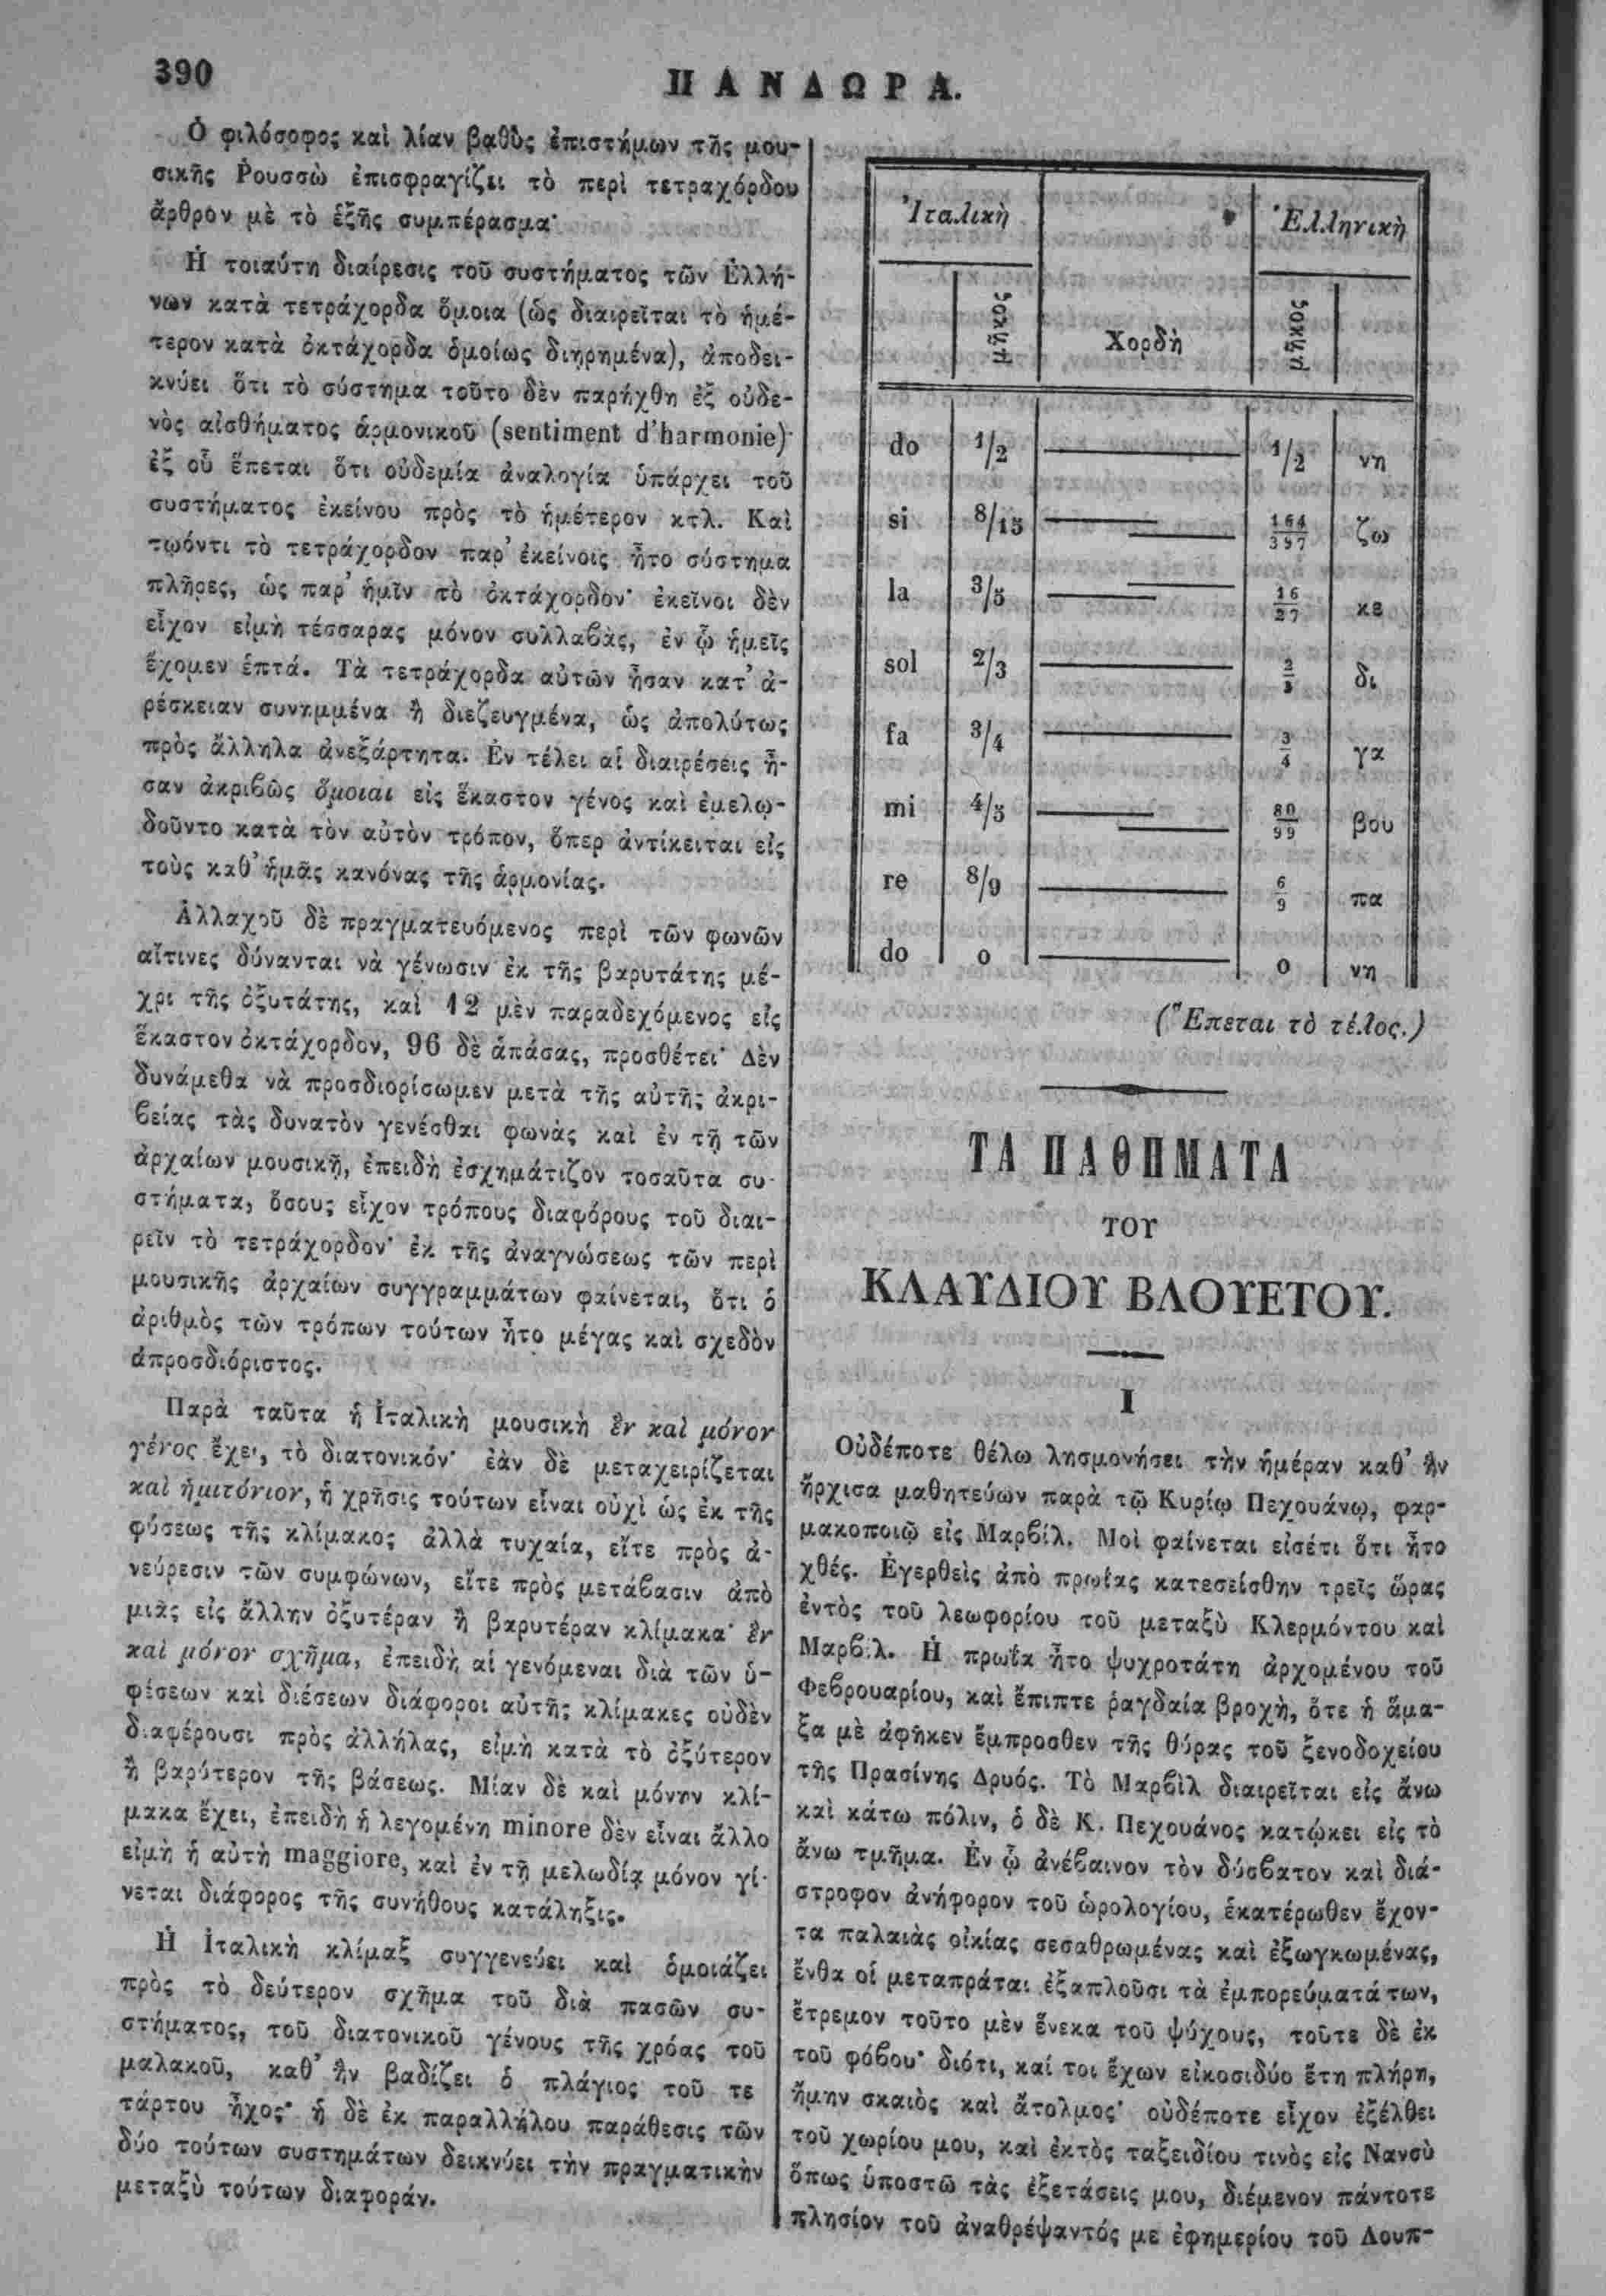 390
ΠΑΝΔΩΡΑ.
Ὁ φιλόσοφος καὶ λίαν βαθὺς ἐπιστήμων τῆς μου-
σικῆς Ῥουσσὼ ἐπισφραγίζει τὸ περὶ τετραχόρδου
ἄρθρον μὲ τὸ ἑξῆς συμπέρασμα·
Ἡ τοιαύτη διαίρεσις τοῦ συστήματος τῶν Ἑλλή-
νων κατὰ τετράχορδα ὅμοια (ὡς διαιρεῖται τὸ ἡμέ-
τερον κατὰ ὀκτάχορδα ὁμοίως διῃρημένα), ἀποδει-
κνύει ὅτι τὸ σύστημα τοῦτο δὲν παρήχθη ἐξ οὐδε-
νὸς αἰσθήματος ἁρμονικοῦ (sentiment d'harmonie)·
ἐξ οὗ ἕπεται ὅτι οὐδεμία ἀναλογία ὑπάρχει τοῦ
συστήματος ἐκείνου πρὸς τὸ ἡμέτερον κτλ. Καὶ
τῳόντι τὸ τετράχορδον παρ' ἐκείνοις ἦτο σύστημα
πλῆρες, ὡς παρ' ἡμῖν τὸ ὀκτάχορδον· ἐκεῖνοι δὲν
εἶχον εἰμὴ τέσσαρας μόνον συλλαβὰς, ἐν ᾧ ἡμεῖς
ἔχομεν ἑπτά. Τὰ τετράχορδα αὐτῶν ἦσαν κατ' ἀ-
ρέσκειαν συνημμένα ἢ διεζευγμένα, ὡς ἀπολύτως
πρὸς ἄλληλα ἀνεξάρτητα. Ἐν τέλει αἱ διαιρέσεις ἦ-
σαν ἀκριβῶς ὅμοιαι εἰς ἕκαστον γένος καὶ ἐμελῳ-
δοῦντο κατὰ τὸν αὐτὸν τρόπον, ὅπερ ἀντίκειται εἰς
τοὺς καθ' ἡμᾶς κανόνας τῆς ἁρμονίας.
Ἀλλαχοῦ δὲ πραγματευόμενος περὶ τῶν φωνῶν
αἵτινες δύνανται νὰ γένωσιν ἐκ τῆς βαρυτάτης μέ-
χρι τῆς ὀξυτάτης, καὶ 12 μὲν παραδεχόμενος εἰς
ἕκαστον ὀκτάχορδον, 96 δὲ ἁπάσας, προσθέτει· Δὲν
δυνάμεθα νὰ προσδιορίσωμεν μετὰ τῆς αὐτῆς ἀκρι-
βείας τὰς δυνατὸν γενέσθαι φωνὰς καὶ ἐν τῇ τῶν
ἀρχαίων μουσικῇ, ἐπειδὴ ἐσχημάτιζον τοσαῦτα συ-
στήματα, ὅσους εἶχον τρόπους διαφόρους τοῦ διαι-
ρεῖν τὸ τετράχορδον· ἐκ τῆς ἀναγνώσεως τῶν περὶ
μουσικῆς ἀρχαίων συγγραμμάτων φαίνεται, ὅτι ὁ
ἀριθμὸς τῶν τρόπων τούτων ἦτο μέγας καὶ σχεδὸν
ἀπροσδιόριστος.
Παρὰ ταῦτα ἡ Ἰταλικὴ μουσικὴ ἓν καὶ μόνον
γένος ἔχει, τὸ διατονικόν· ἐὰν δὲ μεταχειρίζεται
καὶ ἡμιτόνιον, ἡ χρῆσις τούτων εἶναι οὐχὶ ὡς ἐκ τῆς
φύσεως τῆς κλίμακος ἀλλὰ τυχαία, εἴτε πρὸς ἀ-
νεύρεσιν τῶν συμφώνων, εἴτε πρὸς μετάβασιν ἀπὸ
μιᾶς εἰς ἄλλην ὀξυτέραν ἢ βαρυτέραν κλίμακα· ἓν
καὶ μόνον σχῆμα, ἐπειδὴ αἱ γενόμεναι διὰ τῶν ὑ-
φέσεων καὶ διέσεων διάφοροι αὐτῆς κλίμακες οὐδὲν
διαφέρουσι πρὸς ἀλλήλας, εἰμὴ κατὰ τὸ ὀξύτερον
ἢ βαρύτερον τῆς βάσεως. Μίαν δὲ καὶ μόνην κλί-
μακα ἔχει, ἐπειδὴ ἡ λεγομένη minore δὲν εἶναι ἄλλο
εἰμὴ ἡ αὐτὴ maggiore, καὶ ἐν τῇ μελωδίᾳ μόνον γί-
νεται διάφορος τῆς συνήθους κατάληξις.
Ἡ Ἰταλικὴ κλίμαξ συγγενεύει καὶ ὁμοιάζει
πρὸς τὸ δεύτερον σχῆμα τοῦ διὰ πασῶν συ-
στήματος, τοῦ διατονικοῦ γένους τῆς χρόας τοῦ
μαλακοῦ, καθ' ἣν βαδίζει ὁ πλάγιος τοῦ τε
τάρτου ἦχος· ἡ δὲ ἐκ παραλλήλου παράθεσις τῶν
δύο τούτων συστημάτων δεικνύει τὴν πραγματικὴν
μεταξὺ τούτων διαφοράν.
Ἰταλικὴ Ἑλληνικὴ
μῆκος Χορδὴ μῆκος
do 1/2 1/2 νη
si 8/15 164/397 ζω
la 3/5 16/27 κε
sol 2/3 2/3 δι
fa 3/4 3/4 γα
mi 4/5 80/99 βου
re 8/9 6/9 πα
do 0 0 νη
(Ἕπεται τὸ τέλος.)
ΤΑ ΠΑΘΗΜΑΤΑ
ΤΟΥ
ΚΛΑΥΔΙΟΥ ΒΛΟΥΕΤΟΥ.
I
Οὐδέποτε θέλω λησμονήσει τὴν ἡμέραν καθ' ἣν
ἤρχισα μαθητεύων παρὰ τῷ Κυρίῳ Πεχουάνῳ, φαρ-
μακοποιῷ εἰς Μαρβίλ. Μοὶ φαίνεται εἰσέτι ὅτι ἦτο
χθές. Ἐγερθεὶς ἀπὸ πρωίας κατεσείσθην τρεῖς ὥρας
ἐντὸς τοῦ λεωφορίου τοῦ μεταξὺ Κλερμόντου καὶ
Μαρβίλ. Ἡ πρωΐα ἦτο ψυχροτάτη ἀρχομένου τοῦ
Φεβρουαρίου, καὶ ἔπιπτε ῥαγδαία βροχὴ, ὅτε ἡ ἅμα-
ξα μὲ ἀφῆκεν ἔμπροσθεν τῆς θύρας τοῦ ξενοδοχείου
τῆς Πρασίνης Δρυός. Τὸ Μαρβὶλ διαιρεῖται εἰς ἄνω
καὶ κάτω πόλιν, ὁ δὲ Κ. Πεχουάνος κατῴκει εἰς τὸ
ἄνω τμῆμα. Ἐν ᾧ ἀνέβαινον τὸν δύσβατον καὶ διά-
στροφον ἀνήφορον τοῦ ὡρολογίου, ἑκατέρωθεν ἔχον-
τα παλαιὰς οἰκίας σεσαθρωμένας καὶ ἐξωγκωμένας,
ἔνθα οἱ μεταπράται ἐξαπλοῦσι τὰ ἐμπορεύματά των,
ἔτρεμον τοῦτο μὲν ἕνεκα τοῦ ψύχους, τοῦτε δὲ ἐκ
τοῦ φόβου· διότι, καί τοι ἔχων εἰκοσιδύο ἔτη πλήρη,
ἤμην σκαιὸς καὶ ἄτολμος· οὐδέποτε εἶχον ἐξέλθει
τοῦ χωρίου μου, καὶ ἐκτὸς ταξειδίου τινὸς εἰς Νανσὺ
ὅπως ὑποστῶ τὰς ἐξετάσεις μου, διέμενον πάντοτε
πλησίον τοῦ ἀναθρέψαντός με ἐφημερίου τοῦ Δουπ-